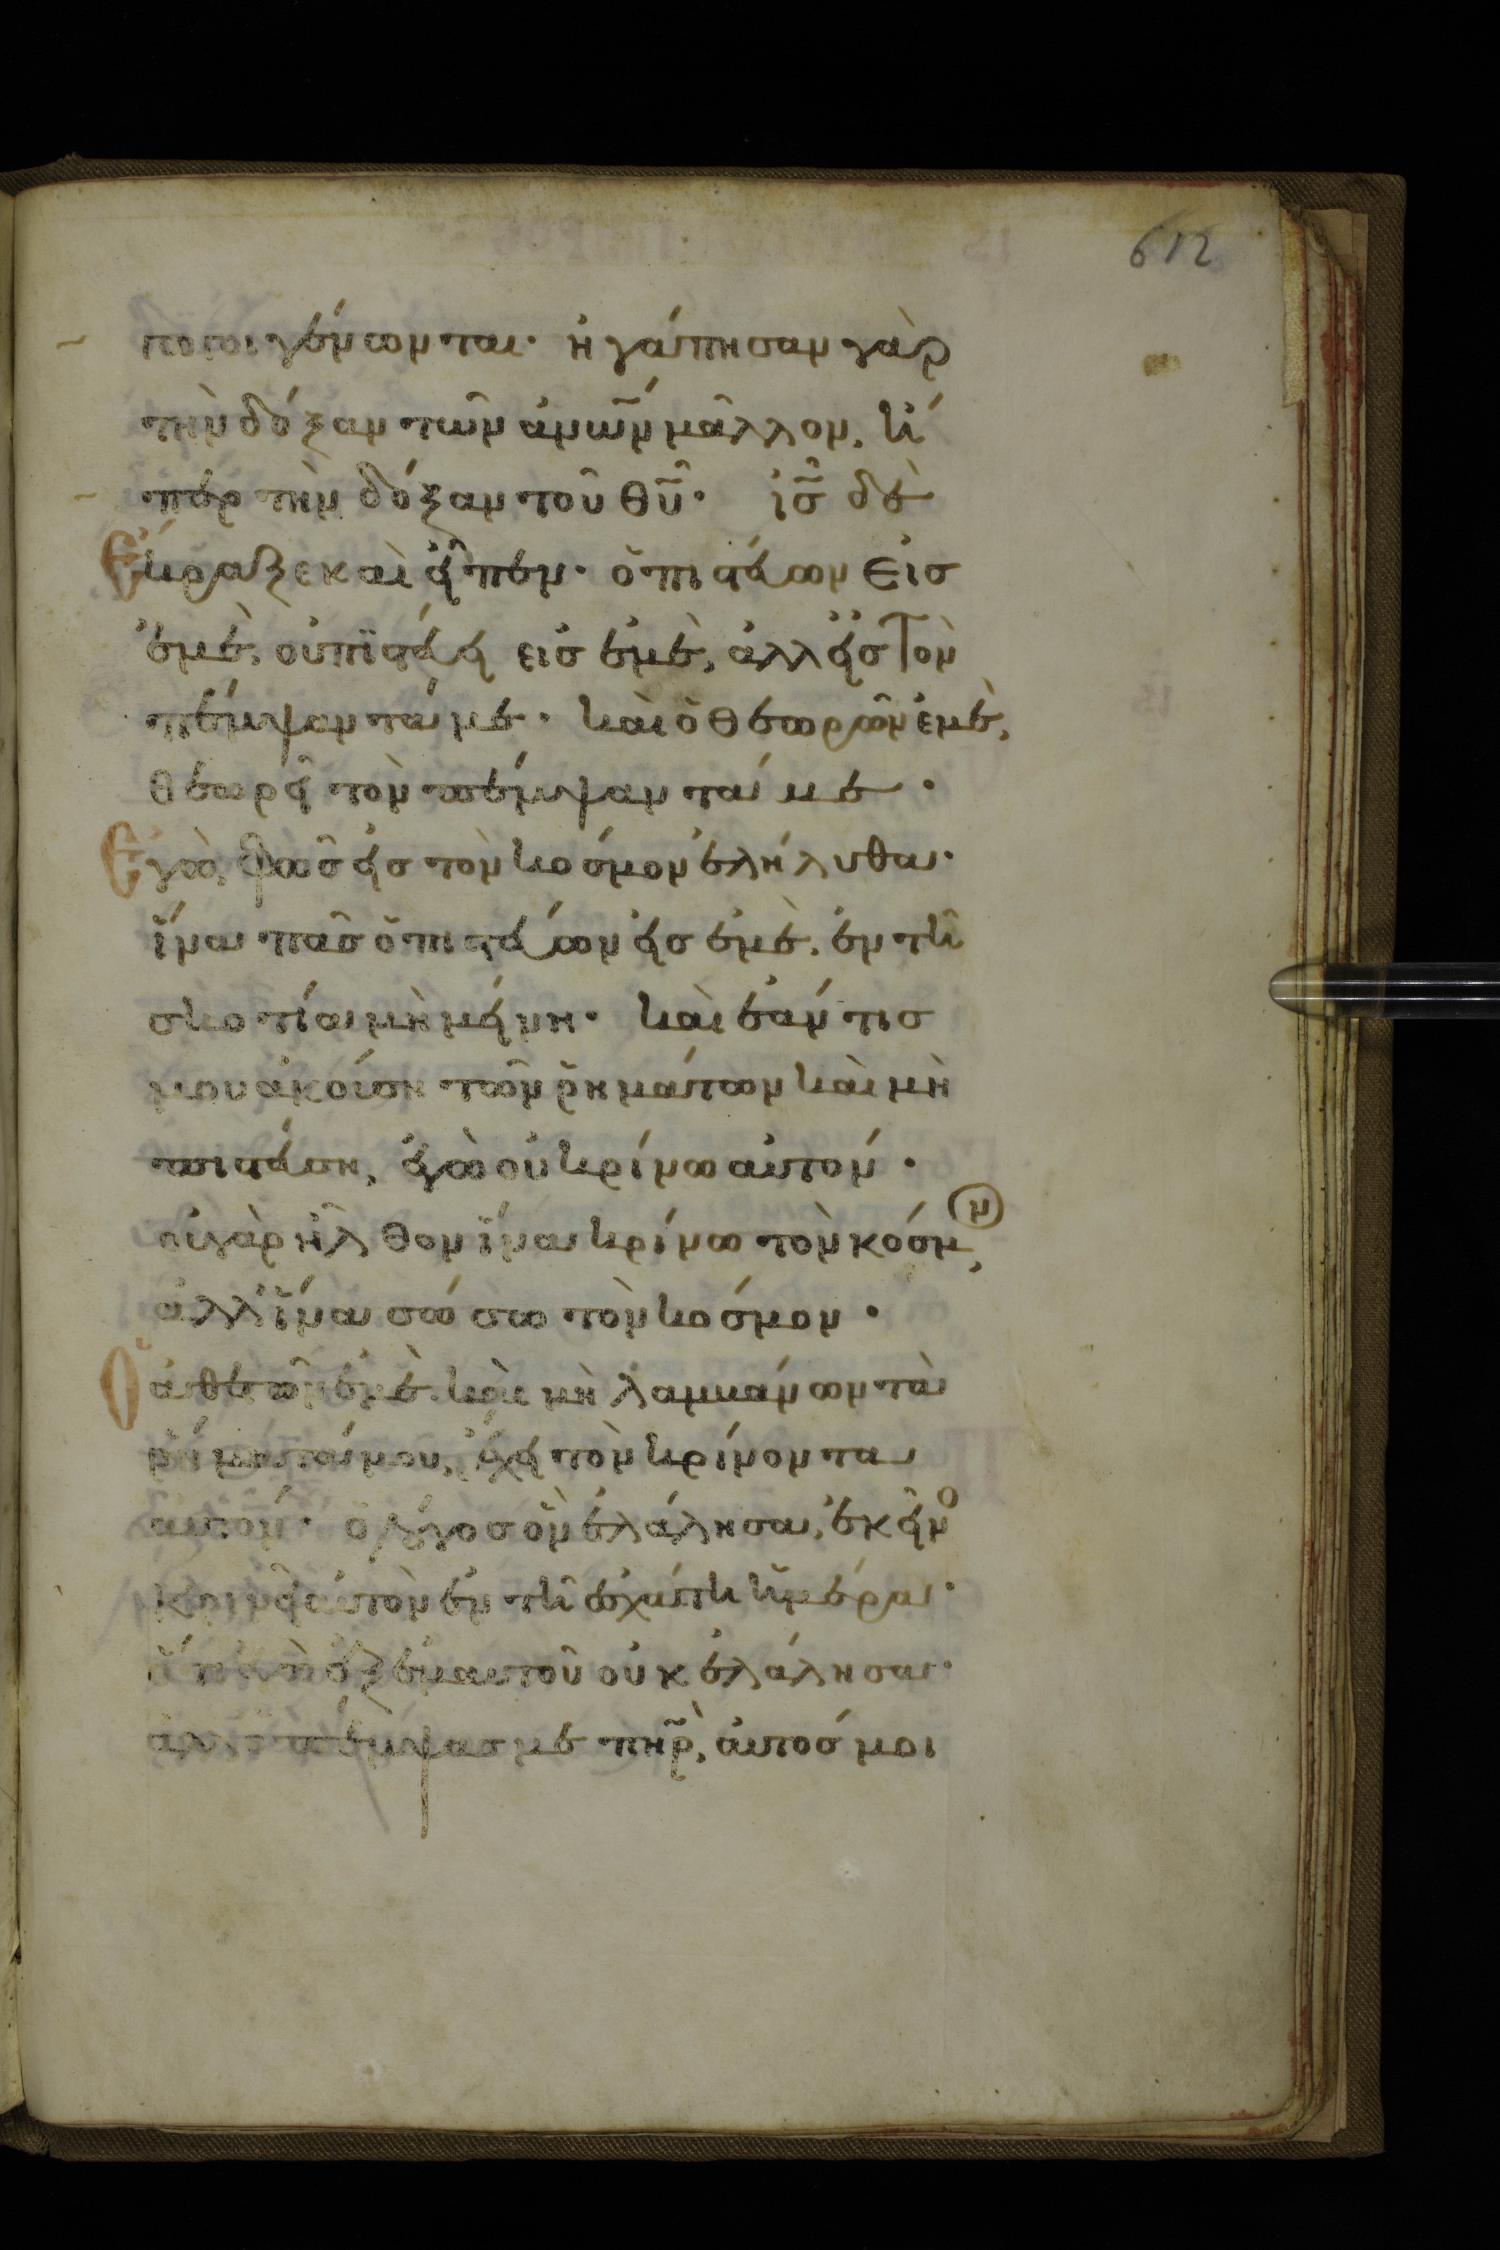 612
ποιοι γένωνται· ἠγάπησαν γὰρ
τὴν δόξαν τῶν ἀν̅ω̅ν μᾶλλον, ἤ
πέρ τὴν δόξαν τοῦ θ̅υ̅· ἰ̅σ̅ δὲ
Ἔκραξε καὶ εἶπεν· ὁ πιστεύων εἰσ
ἐμὲ, οὐ πιστεύει εἰσ ἐμὲ, ἀλλ εἰσ τὸν
πέμψαντά με· καὶ ὁ θεωρῶν ἐμὲ,
θεωρεῖ τὸν πέμψαντά με·
Ἐγὼ, φῶσ εἰσ τὸν κόσμον ἐλήλυθα·
ἵνα πᾶσ ὁ πιστεύων εἰσ ἐμὲ, ἐν τῆ
σκοτία μὴ μείνη· καὶ ἐάν τισ
μου ἀκούση τῶν ῥημάτων καὶ μὴ
πιστεύση, ἐγὼ οὐ κρίνω αὐτόν·
οὐ γὰρ ἦλθον ἵνα κρίνω τὸν κόσμ(ν),
ἀλλ ἵνα σώσω τὸν κόσμον·
Ὁ ἀθετῶν ἐμὲ καὶ μὴ λαμβάνων τὰ
ῥήματά μου, ἔχει τὸν κρίνοντα
αὐτόν· ὁ λόγοσ ὃν ἐλάλησα, ἐκεῖνο
κρινεῖ αὐτὸν ἐν τῆ ἐσχάτη ἡμέρα·
ὅτι ἐγὼ ἐξ ἐμαυτοῦ οὐκ ἐλάλησα·
ἀλλ ὁ πέμψασ με π̅η̅ρ̅, αὐτόσ μοι